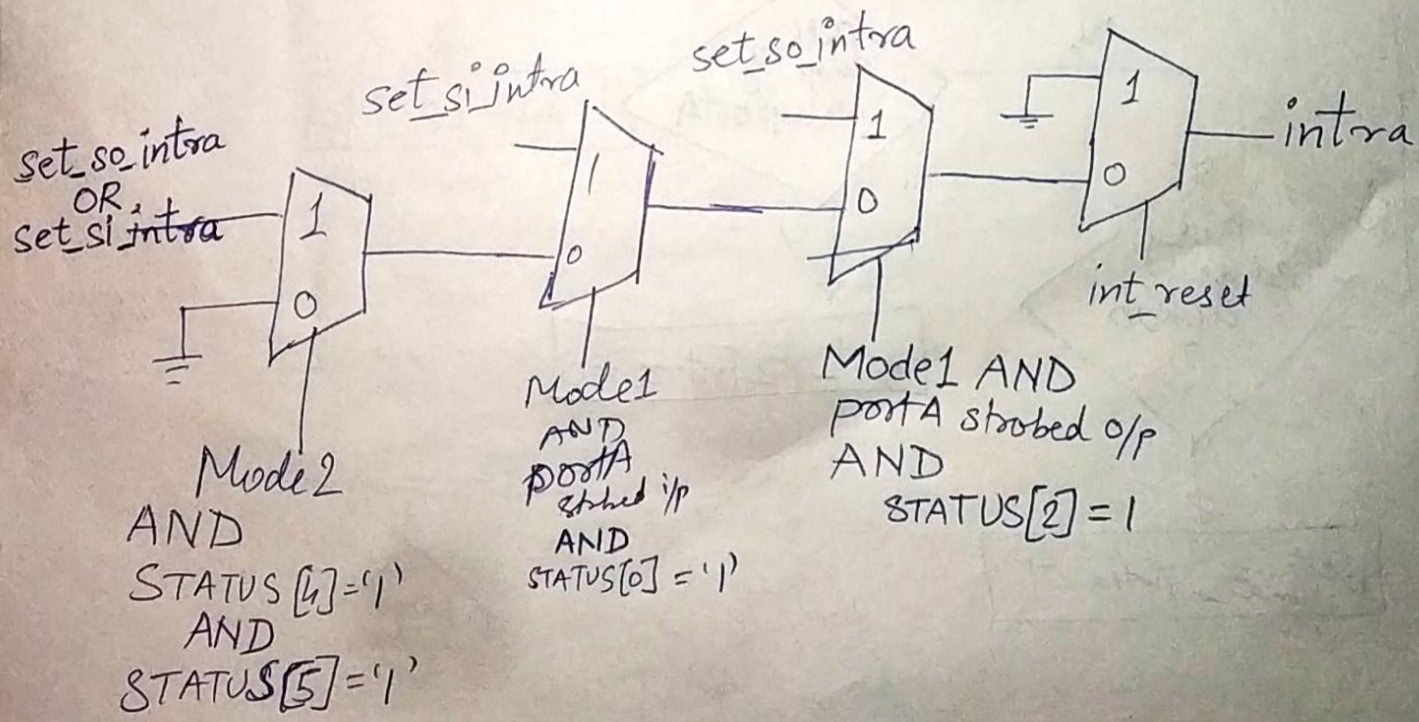 set_so_intra
OR
set_si_intra
1
0
Mode2
AND
STATUS [4]='1'
AND
STATUS[5]='1'
set_si_intra
1
0
Mode1
AND
portA
strobed i/p
AND
STATUS[0] = '1'
set_so_intra
1
0
Mode1 AND
portA strobed o/p
AND
STATUS[2] = 1
1
0
int_reset
intra